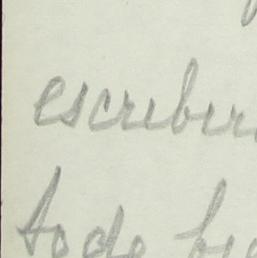 escriber
todo bie